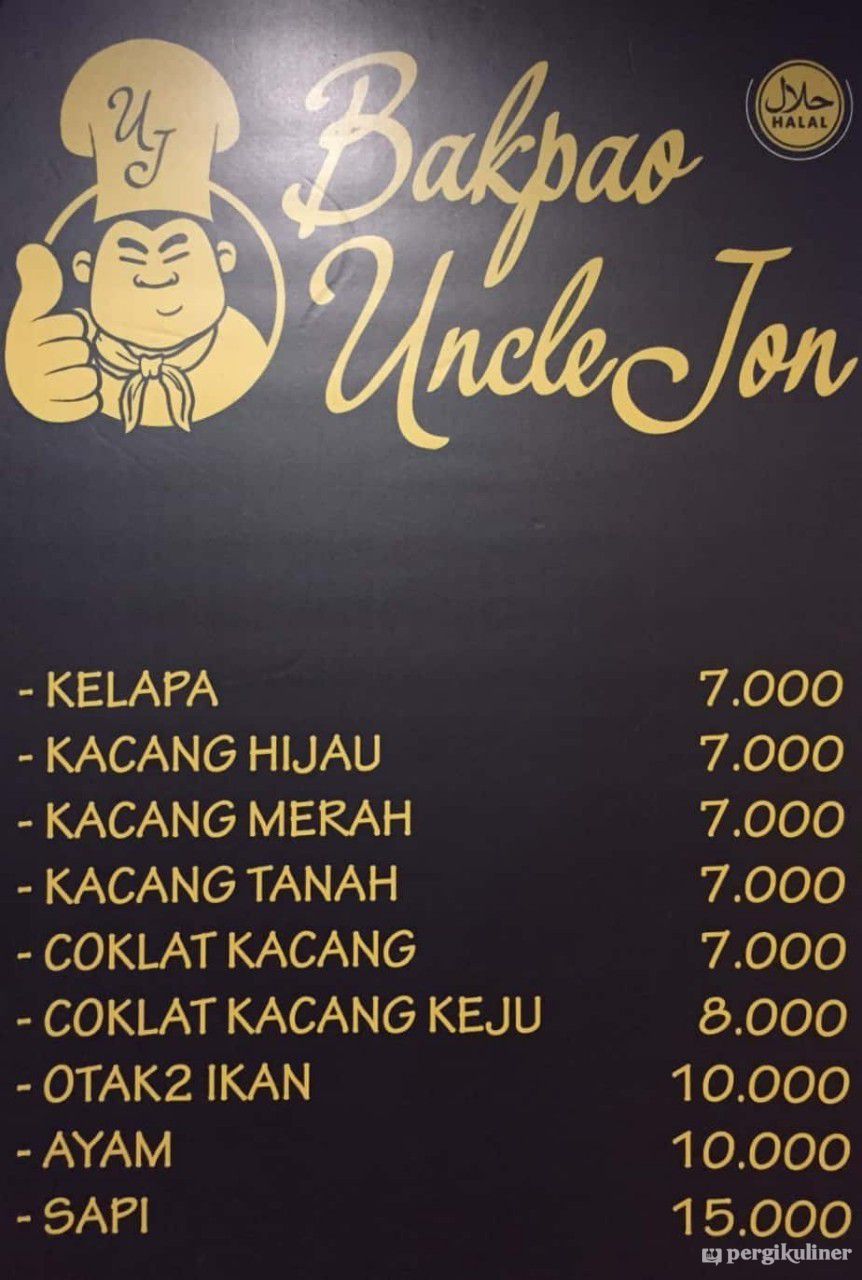 UJ
Bakpao
Uncle Jon
حلال
HALAL
- KELAPA 7.000
- KACANG HIJAU 7.000
- KACANG MERAH 7.000
- KACANG TANAH 7.000
- COKLAT KACANG 7.000
- COKLAT KACANG KEJU 8.000
- OTAK2 IKAN 10.000
- AYAM 10.000
- SAPI 15.000
pergikuliner